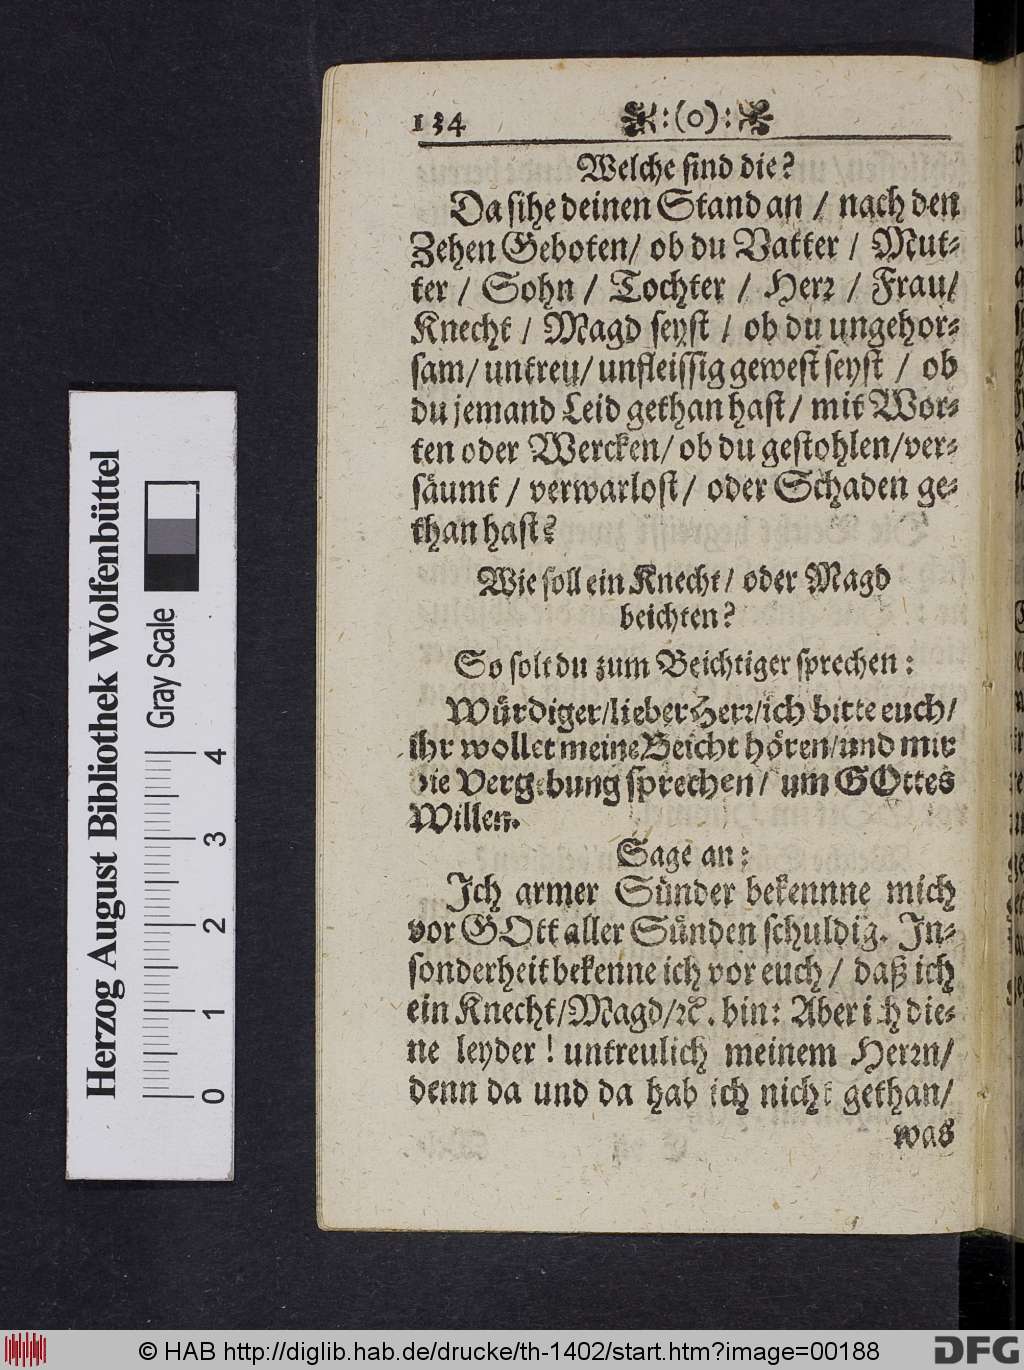 134 :(o):
Welche sind die?
Da sihe deinen Stand an / nach den
Zehen Geboten / ob du Vatter / Mut-
ter / Sohn / Tochter / Herr / Frau /
Knecht / Magd seyst / ob du ungehor-
sam / untreu / unfleissig gewest seyst / ob
du jemand Leid gethan hast / mit Wor-
ten oder Wercken / ob du gestohlen / ver-
säumt / verwarlost / oder Schaden ge-
than hast?
Wie soll ein Knecht / oder Magd
beichten?
So solt du zum Beichtiger sprechen:
Würdiger / lieber Herr / ich bitte euch /
ihr wollet meine Beicht hören / und mir
die Vergebung sprechen / um GOttes
Willen.
Sage an:
Ich armer Sünder bekennne mich
vor GOtt aller Sünden schuldig. In-
sonderheit bekenne ich vor euch / daß ich
ein Knecht / Magd / ꝛc. bin: Aber ich die-
ne leyder! untreulich meinem Herrn /
denn da und da hab ich nicht gethan /
was
Herzog August Bibliothek Wolfenbüttel
Gray Scale
0 1 2 3 4
© HAB http://diglib.hab.de/drucke/th-1402/start.htm?image=00188
DFG